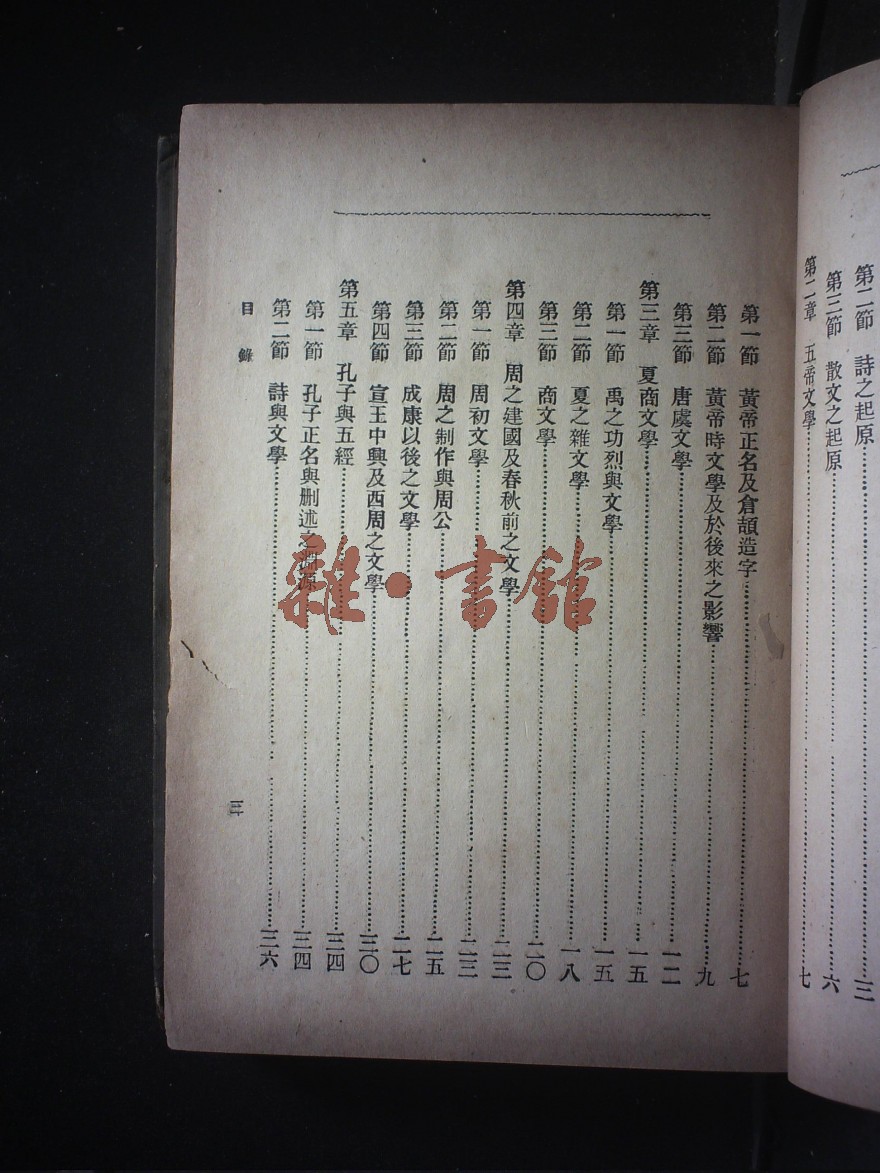 第二節 詩之起原 三
第三節 散文之起原 六
第二章 五帝文學 七
第一節 黃帝正名及倉頡造字 七
第二節 黃帝時文學及於後來之影響 九
第三節 唐虞文學 一二
第三章 夏商文學 一五
第一節 禹之功烈與文學 一五
第二節 夏之雜文學 一八
第三節 商文學 二〇
第四章 周之建國及春秋前之文學 二三
第一節 周初文學 二三
第二節 周之制作與周公 二五
第三節 成康以後之文學 二七
第四節 宣王中興及西周之文學 三〇
第五章 孔子與五經 三四
第一節 孔子正名與刪述之淵源 三四
第二節 詩與文學 三六
目錄
雜·書館